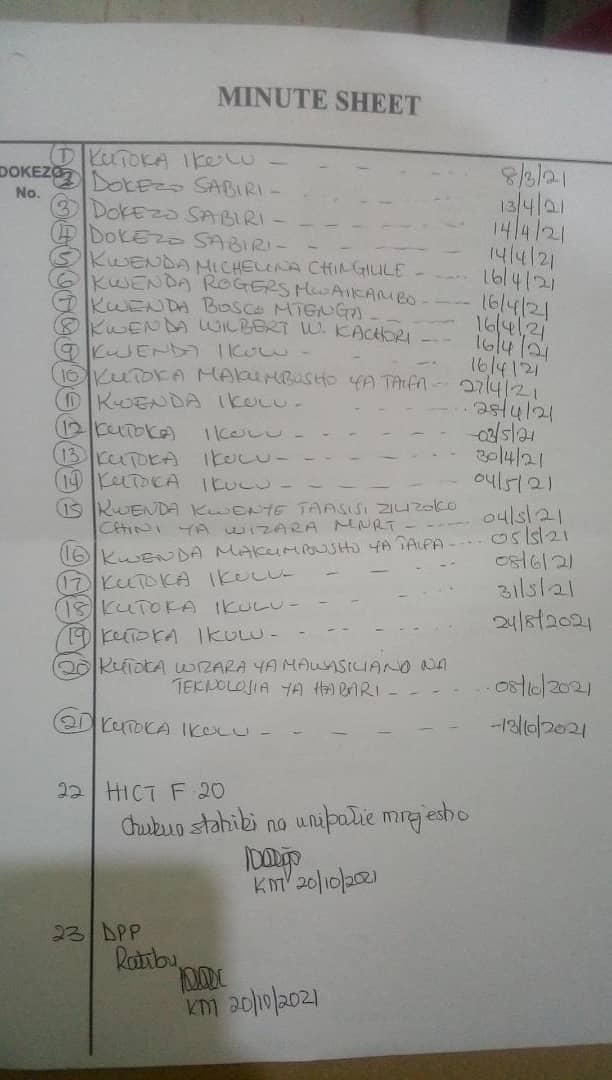 MINUTE SHEET
DOKEZO No.
1 KUTOKA IKULU - - - - 8/3/21
2 DOKEZO SABIRI - - - - 13/4/21
3 DOKEZO SABIRI - - - - 14/4/21
4 DOKEZO SABIRI - - - - 14/4/21
5 KWENDA MICHELINA CHINGIULE - - - - 16/4/21
6 KWENDA ROGERS MWAIKAMBO - - - 16/4/21
7 KWENDA BOSCO MTENGA - - - - 16/4/21
8 KWENDA WILBERT W. KACHORI - - - 16/4/21
9 KWENDA IKULU - - - - 16/4/21
10 KUTOKA MAKUMBUSHO YA TAIFA - - 27/4/21
11 KWENDA IKULU - - - - 28/4/21
12 KUTOKA IKULU - - - - - 03/5/21
13 KUTOKA IKULU - - - - - 30/4/21
14 KUTOKA IKULU - - - - - 04/5/21
15 KWENDA KWENYE TAASISI ZILIZOKO
CHINI YA WIZARA MNRT - - - - 04/5/21
16 KWENDA MAKUMBUSHO YA TAIFA - - - 05/5/21
17 KUTOKA IKULU - - - - 08/6/21
18 KUTOKA IKULU - - - - 31/5/21
19 KUTOKA IKULU - - - - - 24/8/2021
20 KUTOKA WIZARA YA MAWASILIANO NA
TEKNOLOJIA YA HABARI - - - - 08/10/2021
21 KUTOKA IKULU - - - - - - 13/10/2021
22 HICT F. 20
Chukua stahiki na unipatie mrejesho
KM 20/10/2021
23 DPP
Ratibu
KM 20/10/2021